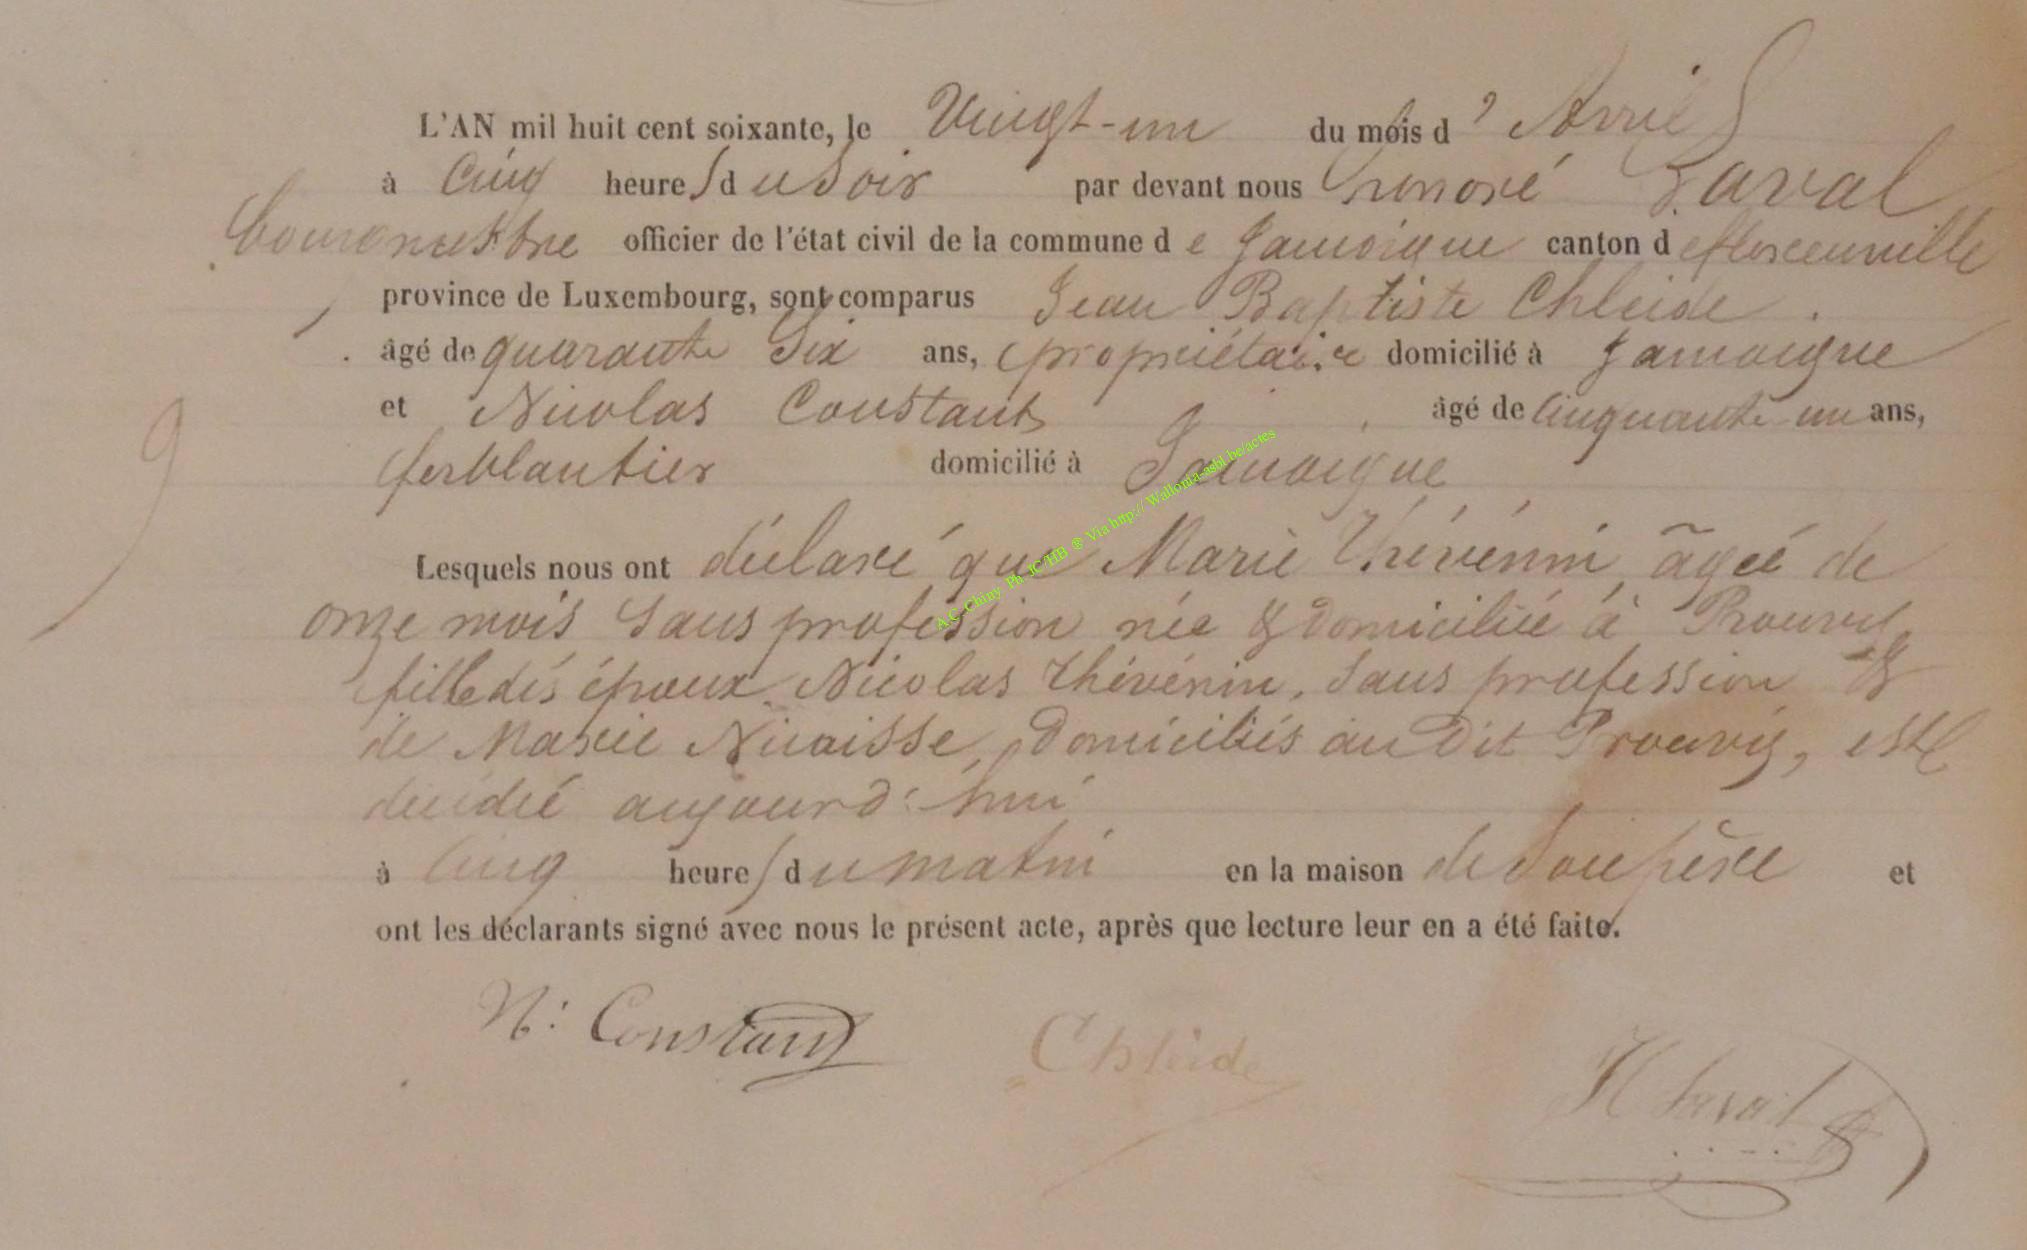 L'AN mil huit cent soixante, le Vingt-un du mois d' Avril
à Cinq heures du Soir par devant nous honoré Laval
bourgmestre officier de l'état civil de la commune de Jamoigne canton de florenville
province de Luxembourg, sont comparus Jean Baptiste Chleide
âgé de quarante Six ans, propriétaire domicilié à Jamoigne
et Nicolas Constant âgé de Cinquante-un ans,
ferblantier domicilié à Jamoigne
Lesquels nous ont déclaré que Marie Thévénin, âgée de
onze mois Sans profession née & Domiciliée à Prouvy
fille dés époux Nicolas Thévénin, Sans profession &
de Marie Nicaisse, Domiciliés au Dit Prouvy, est
décédée aujourd'hui
à Cinq heures du matin en la maison de Son père et
ont les déclarants signé avec nous le présent acte, après que lecture leur en a été faite.
N: Constant Chleide H Laval
A.C. Chiny Ph. JC/HB ® Via http://Wallonia-asbl.be/actes